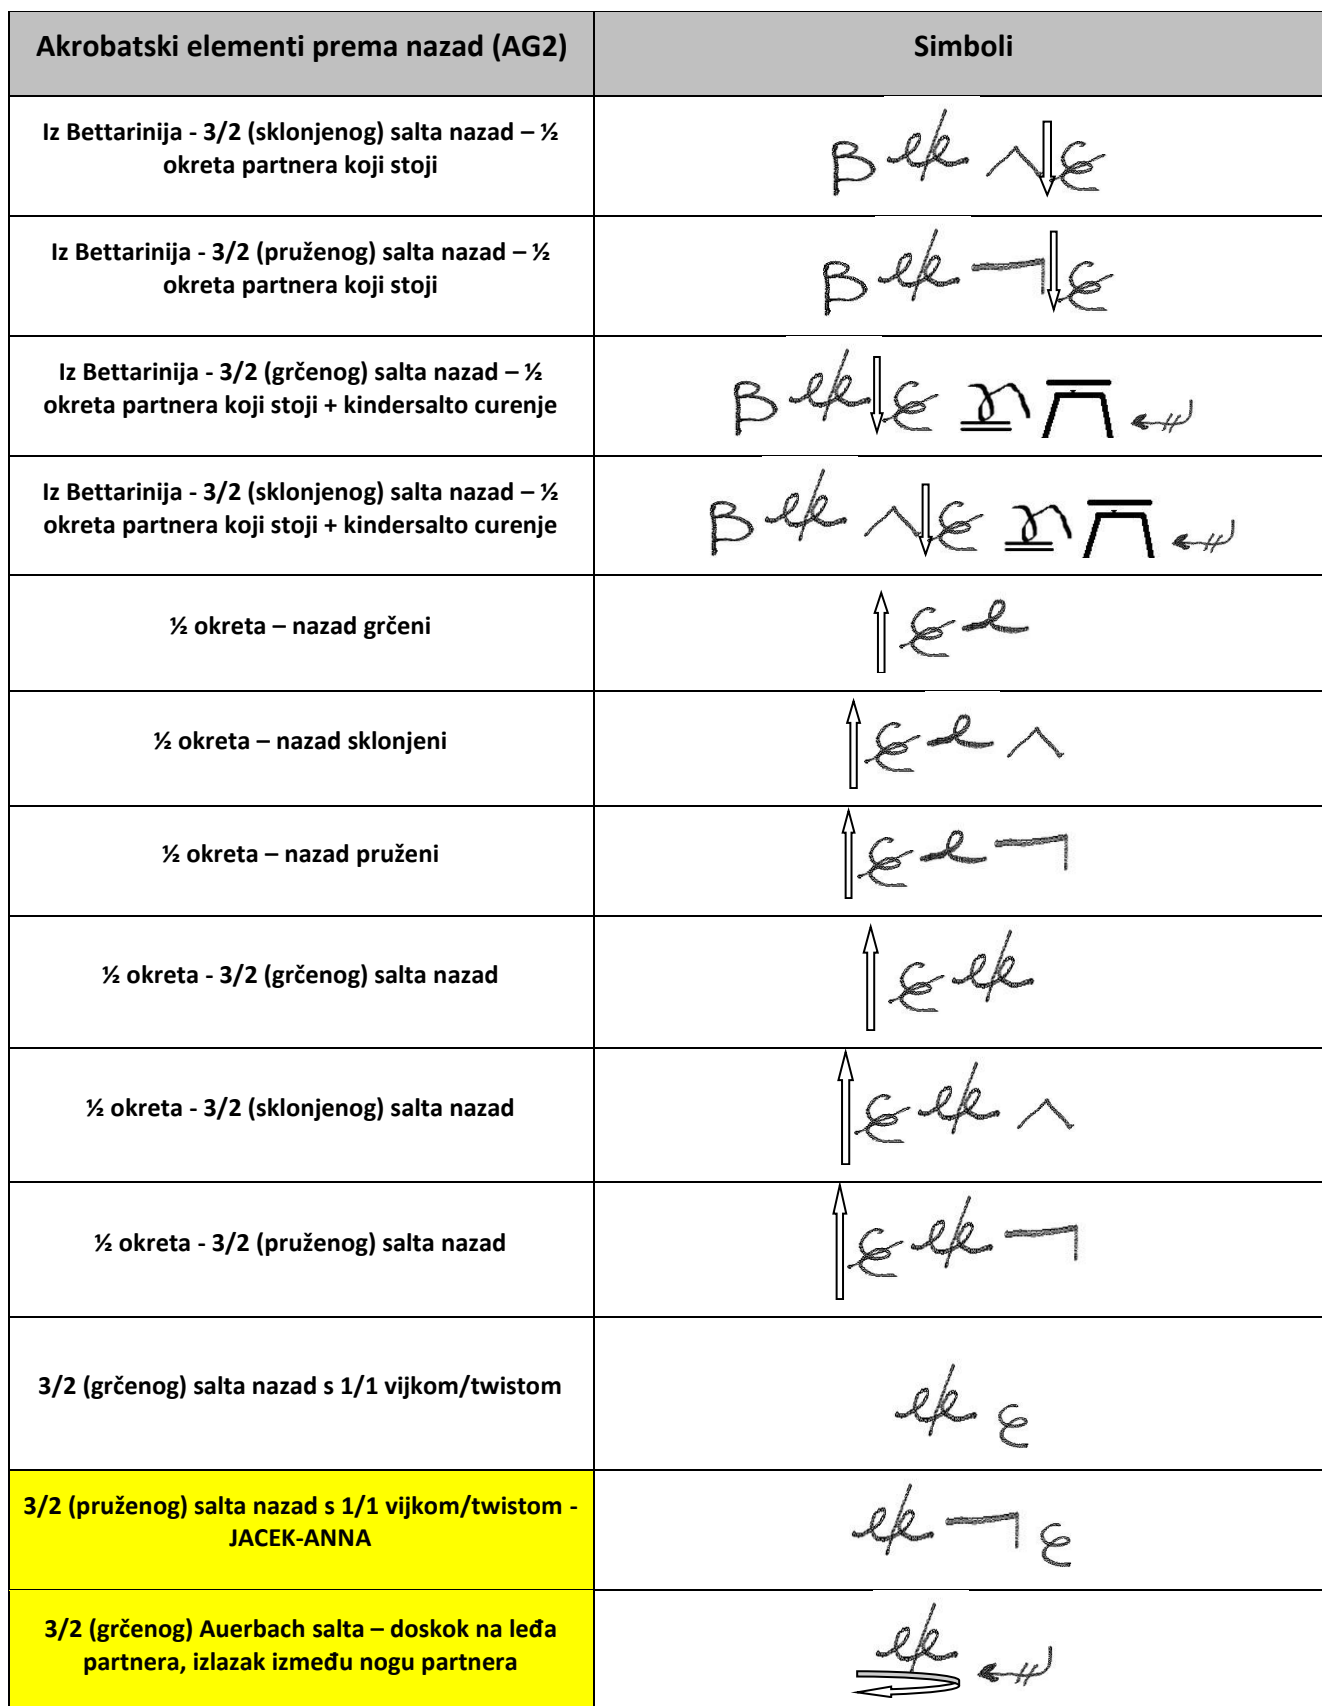 Akrobatski elementi prema nazad (AG2)
Simboli
Iz Bettarinija - 3/2 (sklonjenog) salta nazad – ½
okreta partnera koji stoji
Iz Bettarinija - 3/2 (pruženog) salta nazad – ½
okreta partnera koji stoji
Iz Bettarinija - 3/2 (grčenog) salta nazad – ½
okreta partnera koji stoji + kindersalto curenje
Iz Bettarinija - 3/2 (sklonjenog) salta nazad – ½
okreta partnera koji stoji + kindersalto curenje
½ okreta – nazad grčeni
½ okreta – nazad sklonjeni
½ okreta – nazad pruženi
½ okreta - 3/2 (grčenog) salta nazad
½ okreta - 3/2 (sklonjenog) salta nazad
½ okreta - 3/2 (pruženog) salta nazad
3/2 (grčenog) salta nazad s 1/1 vijkom/twistom
3/2 (pruženog) salta nazad s 1/1 vijkom/twistom -
JACEK-ANNA
3/2 (grčenog) Auerbach salta – doskok na leđa
partnera, izlazak između nogu partnera